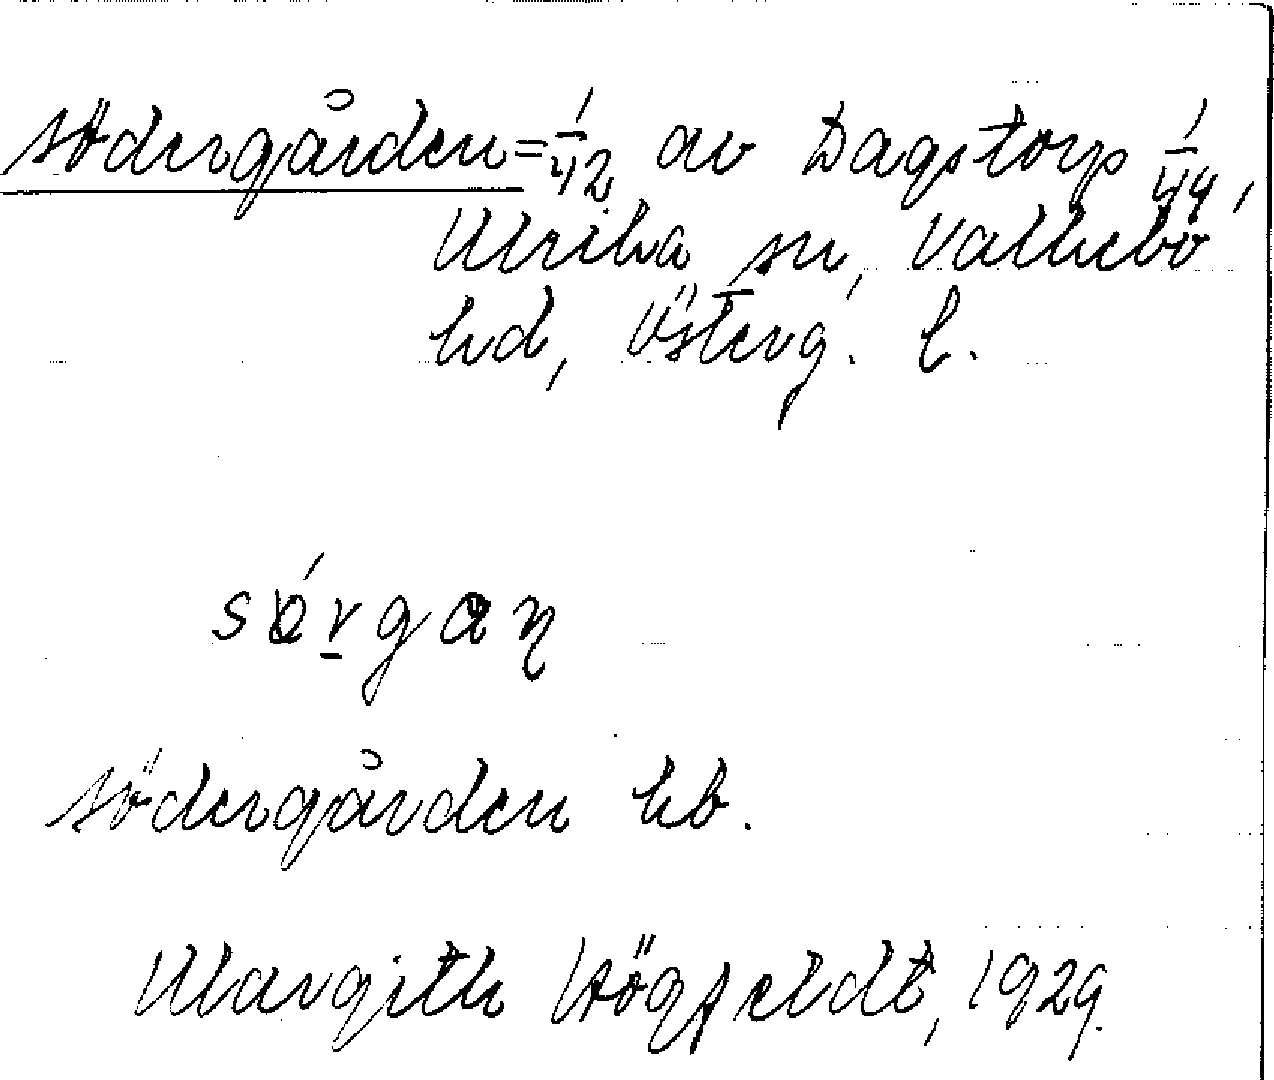 Södergården = 1/42 av Dagstorp 1/44,
Ulrika sn, Valkebo
hd, Österg. l.
sǿrgaɳ
Södergården kb.
Margith Högfeldt, 1929.